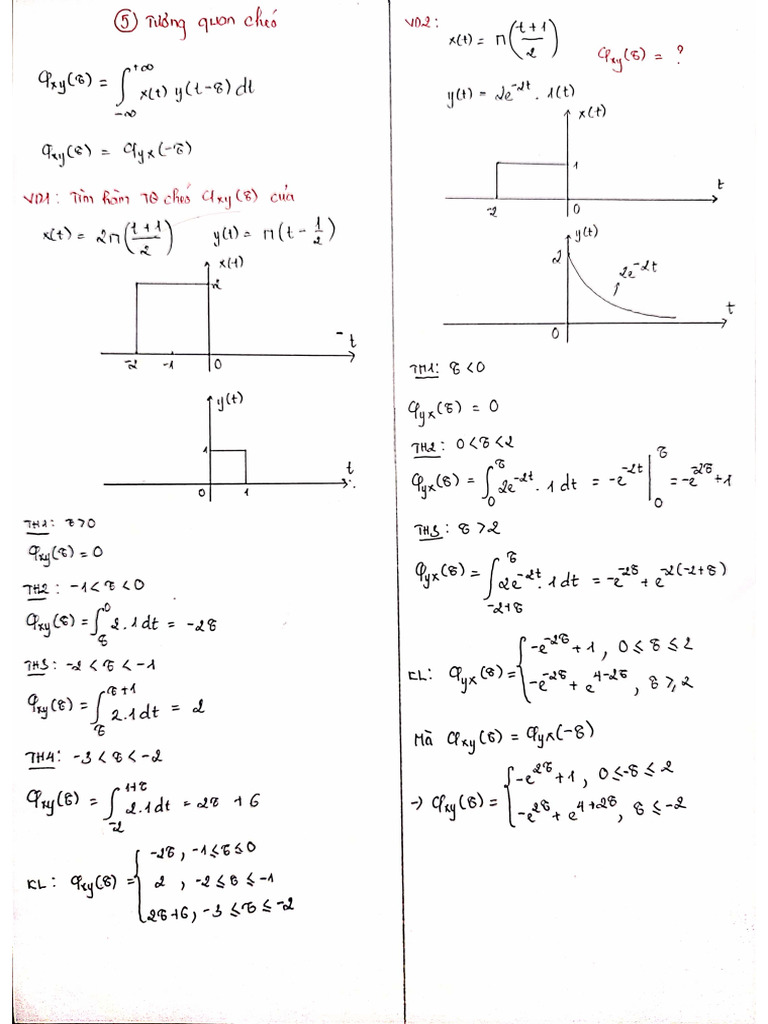 ⑤ Tương quan chéo
φxy(τ) = ∫_{-∞}^{+∞} x(t) y(t-τ) dt
φxy(τ) = φyx(-τ)
VD1: Tìm hàm TQ chéo φxy(τ) của
x(t) = 2π((t+1)/2) y(t) = π(t - 1/2)
x(t)
2
-2 -1 0 t
y(t)
1
0 1 t
TH1: τ>0
φxy(τ) = 0
TH2: -1<τ<0
φxy(τ) = ∫_{τ}^{0} 2.1dt = -2τ
TH3: -2<τ<-1
φxy(τ) = ∫_{τ}^{τ+1} 2.1dt = 2
TH4: -3<τ<-2
φxy(τ) = ∫_{-2}^{1+τ} 2.1dt = 2τ + 6
KL: φxy(τ) = { -2τ, -1≤τ≤0
2, -2≤τ≤-1
2τ+6, -3≤τ≤-2
VD2: x(t) = π((t+1)/2) φxy(τ) = ?
y(t) = 2e^{-2t}.1(t)
x(t)
1
-2 0 t
y(t)
2
2e^{-2t}
0 t
TH1: τ<0
φyx(τ) = 0
TH2: 0<τ<2
φyx(τ) = ∫_{0}^{τ} 2e^{-2t}.1dt = -e^{-2t} |_{0}^{τ} = -e^{-2τ}+1
TH3: τ>2
φyx(τ) = ∫_{-2+τ}^{τ} 2e^{-2t}.1dt = -e^{-2τ} + e^{-2(-2+τ)}
KL: φyx(τ) = { -e^{-2τ}+1, 0≤τ≤2
-e^{-2τ} + e^{4-2τ}, τ≥2
Mà φxy(τ) = φyx(-τ)
→ φxy(τ) = { -e^{2τ}+1, 0≤-τ≤2
-e^{2τ} + e^{4+2τ}, τ≤-2